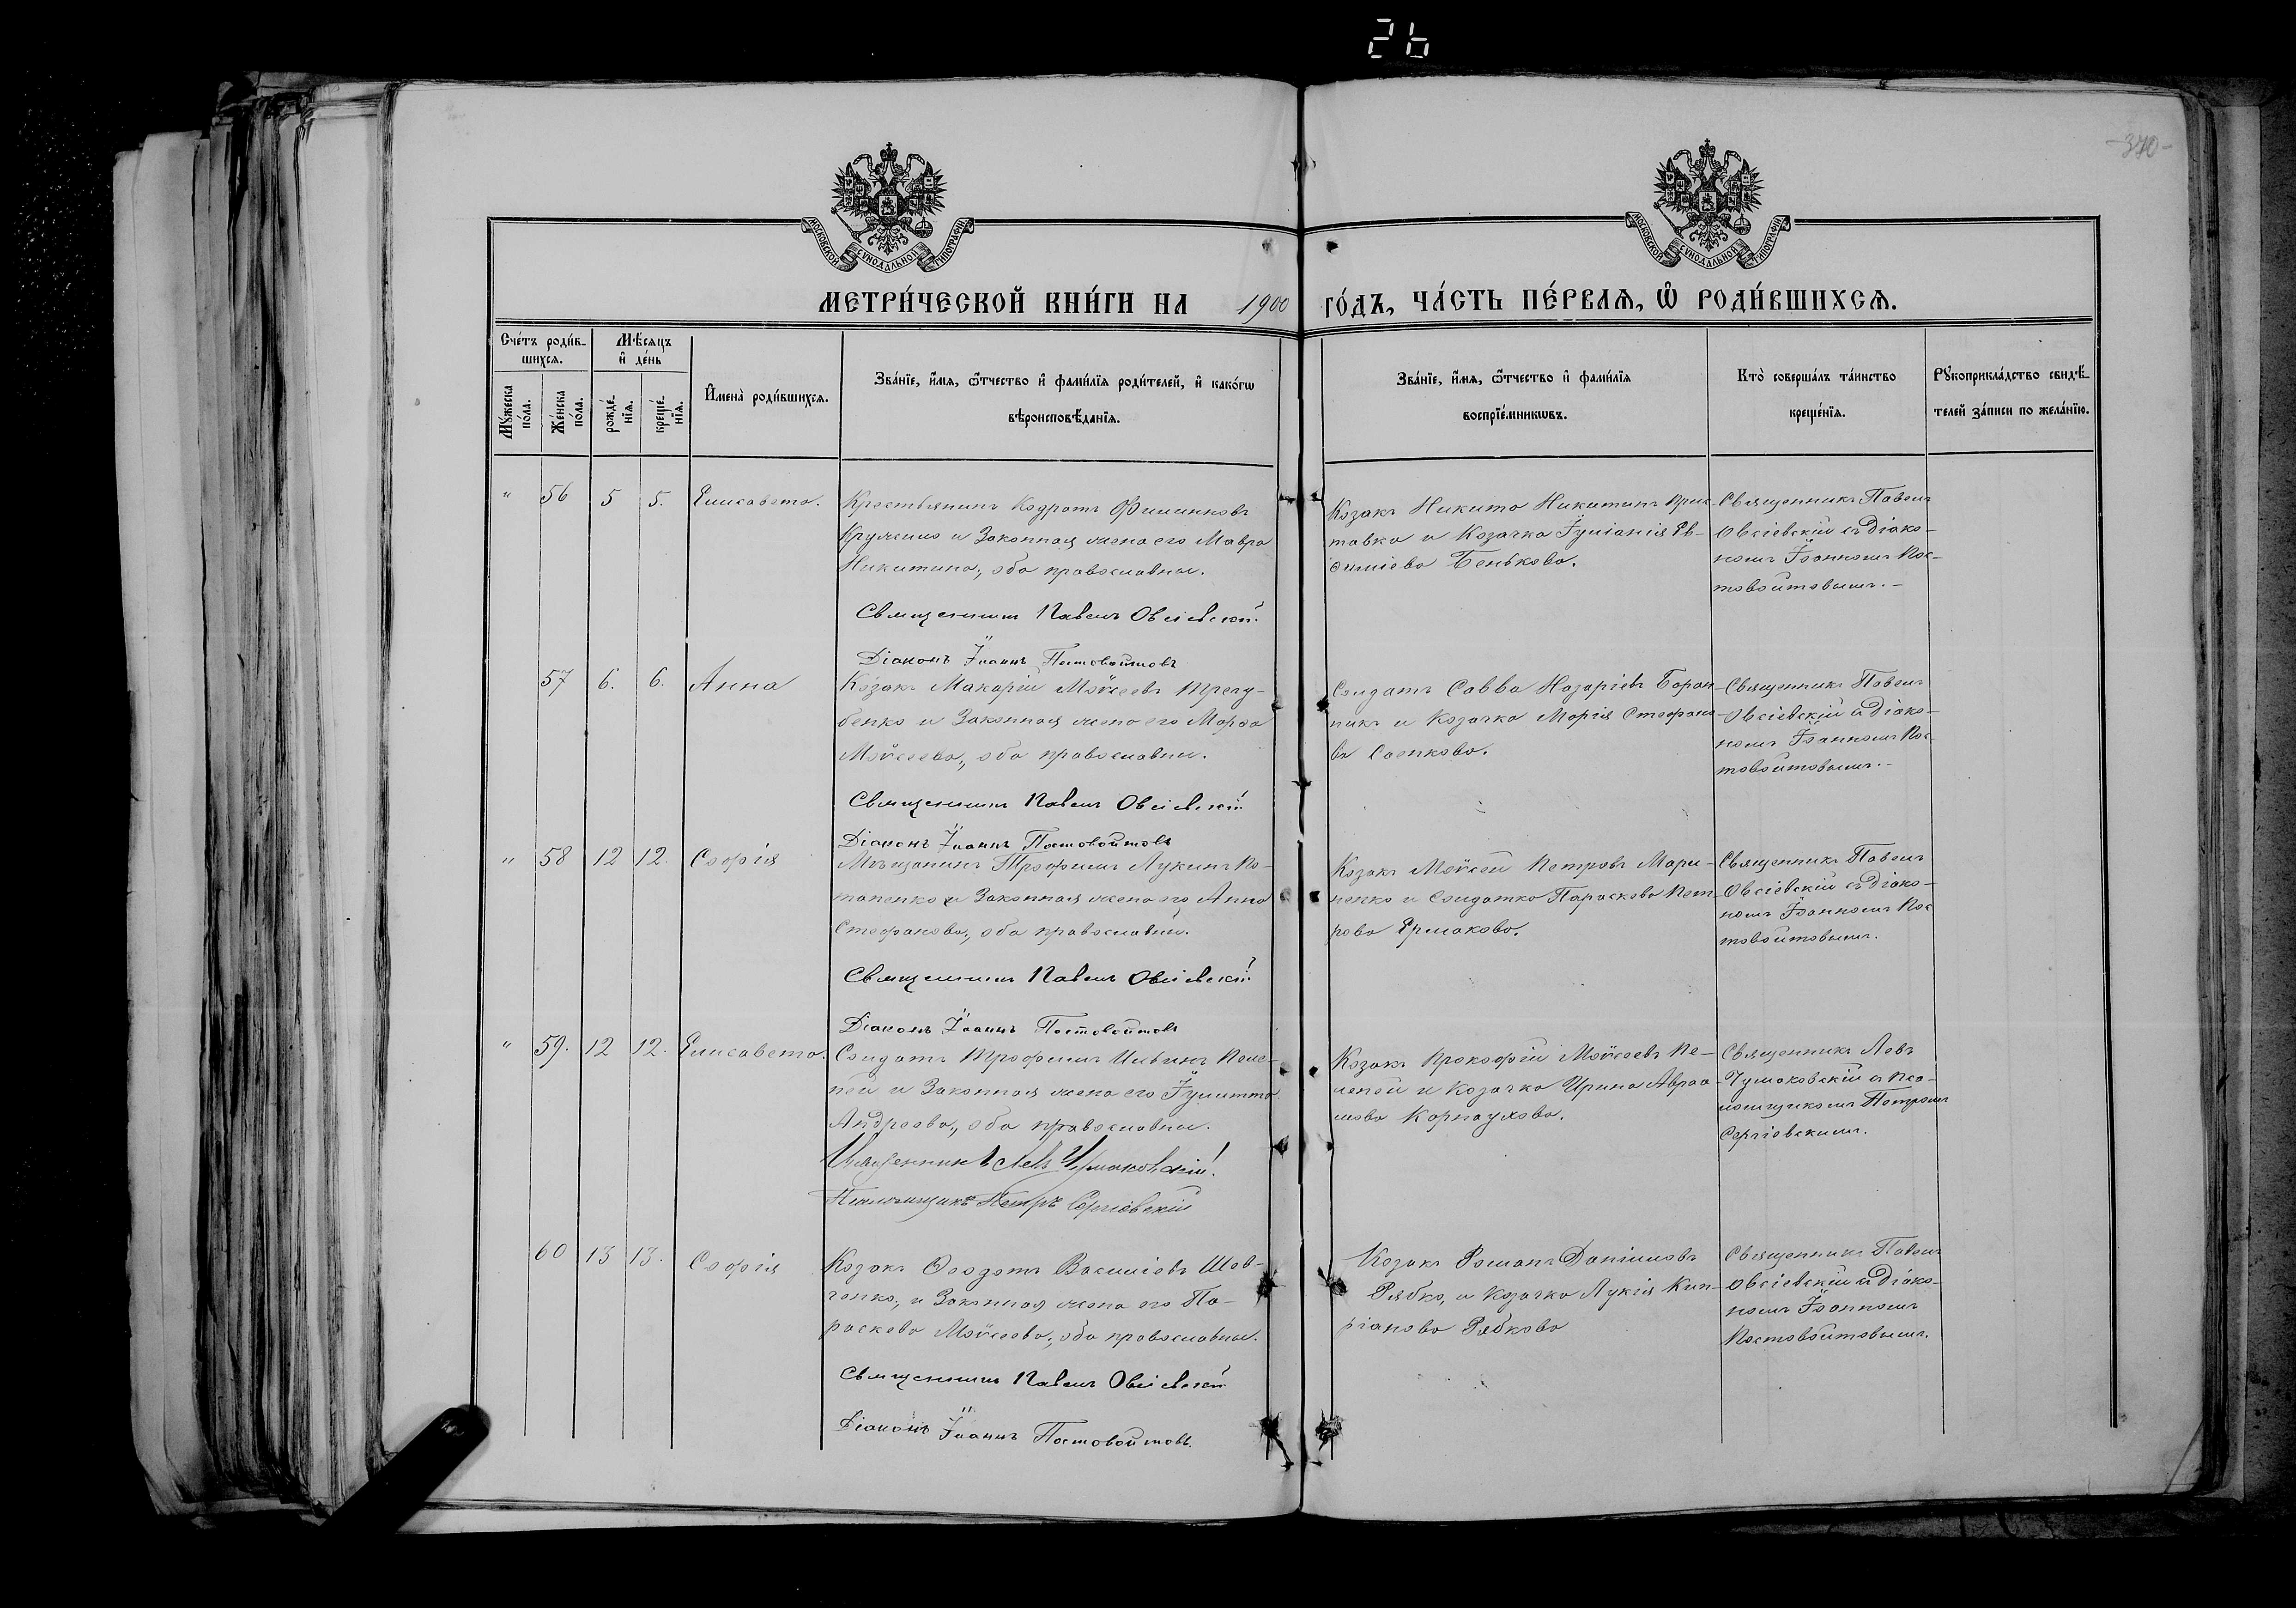 26
-370-
МОСКОВСКОЙ СѴНОДАЛЬНОЙ ТИПОГРАФІИ
МОСКОВСКОЙ СѴНОДАЛЬНОЙ ТИПОГРАФІИ
МЕТРИ́ЧЕСКОЙ КНИ́ГИ НА 1900 ГО́ДЪ, ЧА́СТЬ ПЕ́РВАѦ, Ѿ РОДИ́ВШИХСѦ.
Сче́тъ роди́в-
шихсѧ.
Мꙋ́жеска
по́ла.
Же́нска
по́ла.
Мѣ́сѧцъ
и҆ де́нь
рожде́-
нїѧ.
креще́-
нїѧ.
И҆мена̀ роди́вшихсѧ.
Зва́нїе, и҆́мѧ, ѻ҆́тчество и҆ фами́лїѧ роди́телей, и҆ како́гѡ
вѣроисповѣ́данїѧ.
Зва́нїе, и҆́мѧ, ѻ҆́тчество и҆ фами́лїѧ
воспрїе́мникѡвъ.
Кто̀ соверша́лъ та́инство
креще́нїѧ.
Рꙋкоприкла́дство свидѣ́-
телей за́писи по жела́нїю.
" 56 5 5. Елисавета.
Крестьянинъ Кодратъ Филиповъ
Кружило и Законная жена его Мавра
Никитина, оба православны.
Священникъ Павелъ Овсіевскій.
Діаконъ Іоаннъ Постовойтовъ
Козакъ Никита Никитинъ Прис-
тавка и Козачка Іуліанія Ев-
симіева Бенькова.
Священникъ Павелъ
Овсіевскій съ Діако-
номъ Іоанномъ Пос-
товойтовымъ.-
57 6. 6. Анна
Козакъ Макарій Моѵсеевъ Трегу-
бенко и Законная жена его Марѳа
Моѵсеева, оба православны.
Священникъ Павелъ Овсіевскій
Діаконъ Іоаннъ Постовойтовъ
Солдатъ Савва Назаріевъ Баран-
никъ и Козачка Марія Стефано-
ва Саенкова.
Священникъ Павелъ
Овсіевскій съ Діако-
номъ Іоанномъ Пос-
товойтовымъ.-
" 58 12 12. Софія
Мѣщанинъ Трофимъ Лукинъ По-
тапенко и Законная жена его Анна
Стефанова, оба православны.
Священникъ Павелъ Овсіевскій
Діаконъ Іоаннъ Постовойтовъ
Козакъ Моѵсей Петровъ Мари-
ненко и Солдатка Параскева Пет-
рова Ермакова.
Священникъ Павелъ
Овсіевскій съ Діако-
номъ Іоанномъ Пос-
товойтовымъ.
" 59. 12 12. Елисавета.
Солдатъ Трофимъ Ильинъ Пеле-
пей и Законная жена его Іулитта
Андреева, оба православны.
Священникъ Левъ Чумаковскій
Псаломщикъ Петръ Сергіевскій
Козакъ Прокофій Моѵсеевъ Пе-
лепей и Козачка Ирина Авраа-
мова Карнаухова.
Священникъ Левъ
Чумаковскій съ Пса-
ломщикомъ Петромъ
Сергіевскимъ.
60 13 13. Софія
Козакъ Ѳеодотъ Василіевъ Шев-
ченко, и Законная жена его Па-
раскева Моѵсеева, оба православны.
Священникъ Павелъ Овсіевскій
Діаконъ Іоаннъ Постовойтовъ.
Козакъ Романъ Даніиловъ
Рябко, и Козачка Лукія Кип-
ріанова Рябкова
Священникъ Павелъ
Овсіевскій съ Діако-
номъ Іоанномъ
Постовойтовымъ.